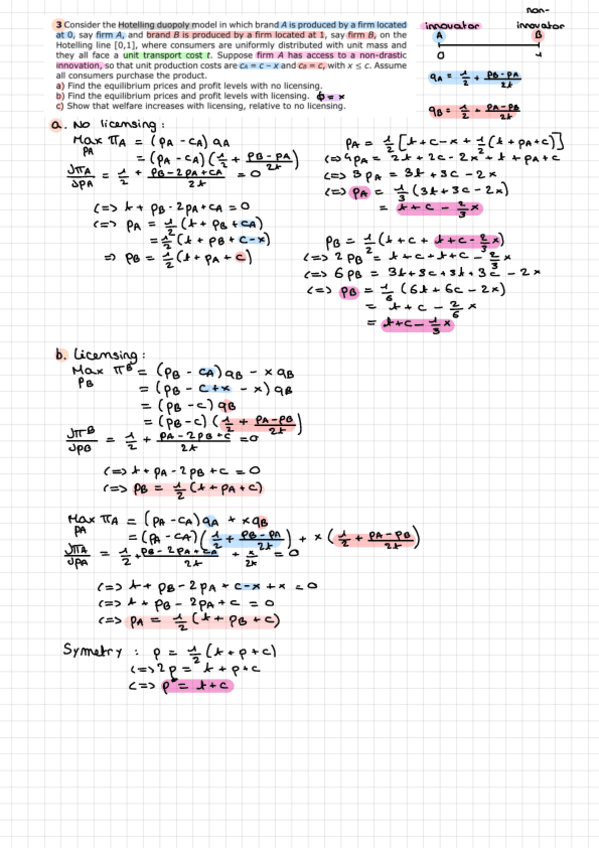 3 Consider the Hotelling duopoly model in which brand A is produced by a firm located
at 0, say firm A, and brand B is produced by a firm located at 1, say firm B, on the
Hotelling line [0,1], where consumers are uniformly distributed with unit mass and
they all face a unit transport cost t. Suppose firm A has access to a non-drastic
innovation, so that unit production costs are cA = c – x and cB = c, with x ≤ c. Assume
all consumers purchase the product.
a) Find the equilibrium prices and profit levels with no licensing.
b) Find the equilibrium prices and profit levels with licensing. ϕ = x
c) Show that welfare increases with licensing, relative to no licensing.
innovator
non-
innovator
A B
0 1
qA = 1/2 + (pB - pA)/2t
qB = 1/2 + (pA - pB)/2t
a. No licensing :
Max πA = (pA - cA) qA
pA
= (pA - cA) (1/2 + (pB - pA)/2t)
∂πA/∂pA = 1/2 + (pB - 2pA + cA)/2t = 0
<=> t + pB - 2pA + cA = 0
<=> pA = 1/2 (t + pB + cA)
= 1/2 (t + pB + c - x)
=> pB = 1/2 (t + pA + c)
pA = 1/2 [t + c - x + 1/2 (t + pA + c)]
<=> 4pA = 2t + 2c - 2x + t + pA + c
<=> 3pA = 3t + 3c - 2x
<=> pA = 1/3 (3t + 3c - 2x)
= t + c - 2/3 x
pB = 1/2 (t + c + t + c - 2/3 x)
<=> 2pB = t + c + t + c - 2/3 x
<=> 6pB = 3t + 3c + 3t + 3c - 2x
<=> pB = 1/6 (6t + 6c - 2x)
= t + c - 2/6 x
= t + c - 1/3 x
b. Licensing :
Max πB = (pB - cA) qB - x qB
pB
= (pB - c + x - x) qB
= (pB - c) qB
= (pB - c) (1/2 + (pA - pB)/2t)
∂πB/∂pB = 1/2 + (pA - 2pB + c)/2t = 0
<=> t + pA - 2pB + c = 0
<=> pB = 1/2 (t + pA + c)
Max πA = (pA - cA) qA + x qB
pA
= (pA - cA) (1/2 + (pB - pA)/2t) + x (1/2 + (pA - pB)/2t)
∂πA/∂pA = 1/2 + (pB - 2pA + cA)/2t + x/2t = 0
<=> t + pB - 2pA + c - x + x = 0
<=> t + pB - 2pA + c = 0
<=> pA = 1/2 (t + pB + c)
Symetry : p = 1/2 (t + p + c)
<=> 2p = t + p + c
<=> p* = t + c